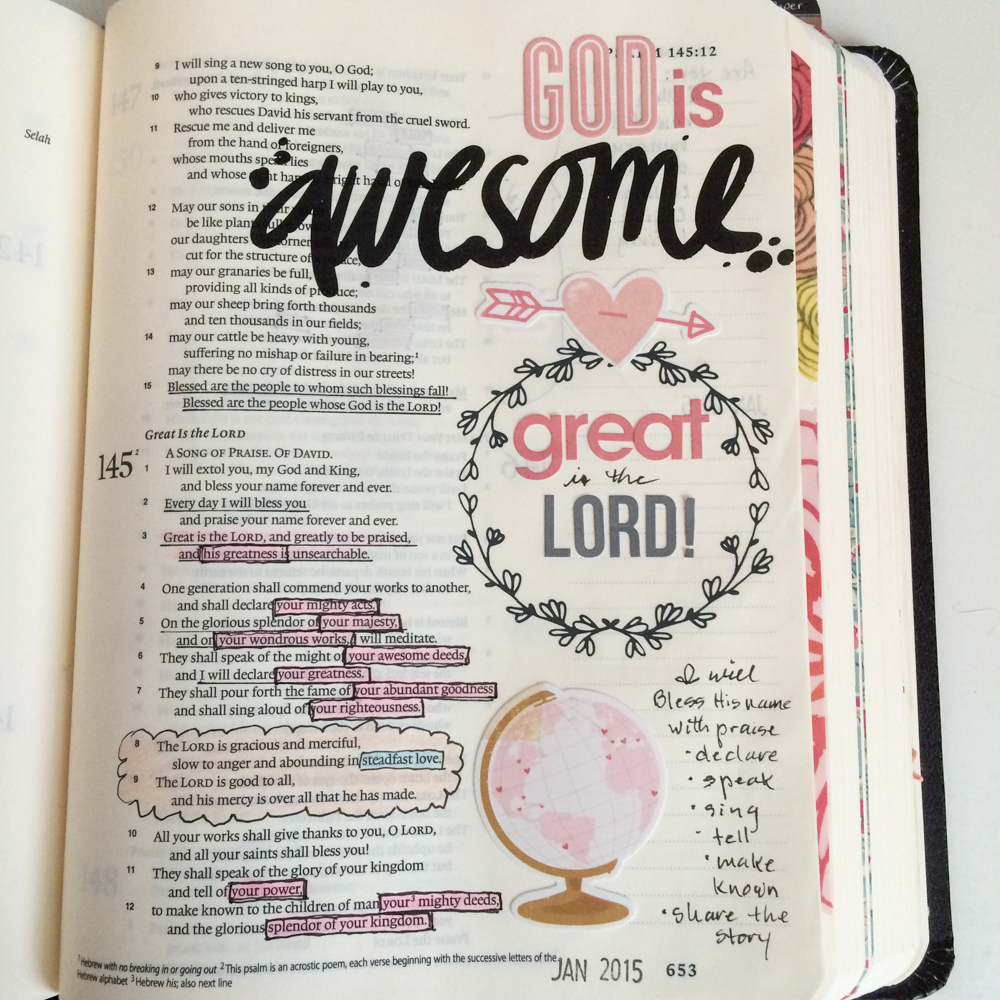 Selah
PSALM 145:12
GOD is
awesome
9 I will sing a new song to you, O God;
upon a ten-stringed harp I will play to you,
10 who gives victory to kings,
who rescues David his servant from the cruel sword.
11 Rescue me and deliver me
from the hand of foreigners,
whose mouths speak lies
and whose right hand right hand of
12 May our sons in their
be like plants full grown
our daughters corner
cut for the structure of a palace,
13 may our granaries be full,
providing all kinds of produce;
may our sheep bring forth thousands
and ten thousands in our fields;
14 may our cattle be heavy with young,
suffering no mishap or failure in bearing;1
may there be no cry of distress in our streets!
15 Blessed are the people to whom such blessings fall!
Blessed are the people whose God is the LORD!
Great Is the LORD
145 2 A SONG OF PRAISE. OF DAVID.
1 I will extol you, my God and King,
and bless your name forever and ever.
2 Every day I will bless you
and praise your name forever and ever.
3 Great is the LORD, and greatly to be praised,
and his greatness is unsearchable.
4 One generation shall commend your works to another,
and shall declare your mighty acts.
5 On the glorious splendor of your majesty,
and on your wondrous works, I will meditate.
6 They shall speak of the might of your awesome deeds,
and I will declare your greatness.
7 They shall pour forth the fame of your abundant goodness
and shall sing aloud of your righteousness.
8 The LORD is gracious and merciful,
slow to anger and abounding in steadfast love.
9 The LORD is good to all,
and his mercy is over all that he has made.
10 All your works shall give thanks to you, O LORD,
and all your saints shall bless you!
11 They shall speak of the glory of your kingdom
and tell of your power,
12 to make known to the children of man your3 mighty deeds,
and the glorious splendor of your kingdom.
great
is the
LORD!
I will
Bless His name
with praise
• declare
• speak
• sing
• tell
• make
known
• share the
story
1 Hebrew with no breaking in or going out 2 This psalm is an acrostic poem, each verse beginning with the successive letters of the
Hebrew alphabet 3 Hebrew his; also next line
JAN 2015 653